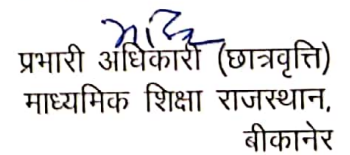 प्रभारी अधिकारी (छात्रवृत्ति)
माध्यमिक शिक्षा राजस्थान,
बीकानेर